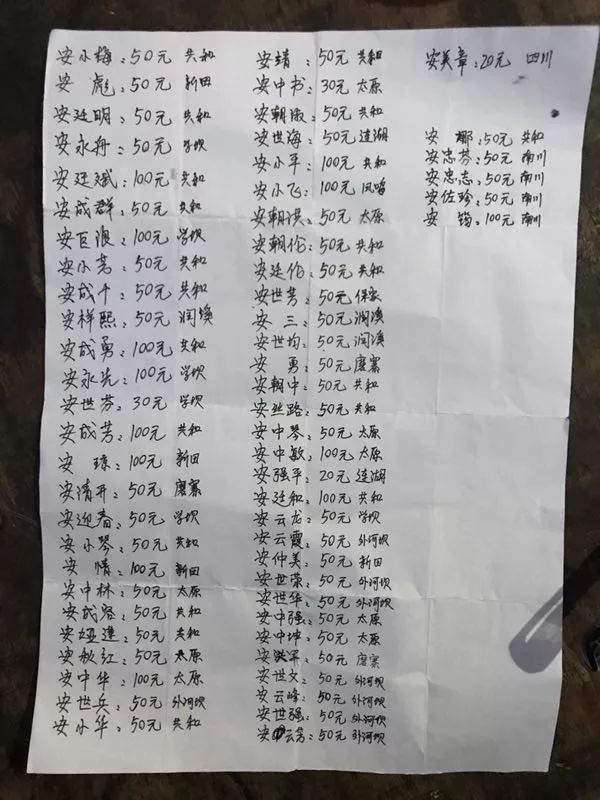 安小梅：50元 共和
安彪：50元 新田
安廷明：50元 共和
安永舟：50元 学坝
安廷斌：100元 共和
安成群：50元 共和
安巨浪：100元 学坝
安小芳：50元 共和
安成千：50元 共和
安祥熙：50元 润溪
安成勇：100元 共和
安永先：100元 学坝
安世芬：30元 学坝
安成芳：100元 共和
安琼：100元 新田
安清开：50元 廖寨
安迎春：50元 学坝
安小琴：50元 共和
安情：100元 新田
安中林：50元 太原
安成容：50元 共和
安娅莲：50元 共和
安秋红：50元 太原
安中华：100元 太原
安世兵：50元 外河坝
安小华：50元 共和
安靖：50元 共和
安中书：30元 太原
安朝淑：50元 共和
安世海：50元 连湖
安小平：100元 共和
安小飞：100元 凤鸣
安朝洪：50元 太原
安朝伦：50元 共和
安廷伦：50元 共和
安世芳：50元 保家
安三：50元 润溪
安世均：50元 润溪
安勇：50元 廖寨
安朝中：50元 共和
安丝路：50元 共和
安中琴：50元 太原
安中敏：100元 太原
安强平：20元 连湖
安廷和：100元 共和
安云龙：50元 学坝
安云霞：50元 外河坝
安仲美：50元 新田
安世荣：50元 外河坝
安世华：50元 外河坝
安中强：50元 太原
安中坤：50元 太原
安洪军：50元 廖寨
安世文：50元 外河坝
安云峰：50元 外河坝
安世强：50元 外河坝
安云芳：50元 外河坝
安美章：20元 四川
安娜：50元 共和
安忠芬：50元 南川
安忠志：50元 南川
安佐珍：50元 南川
安筠：100元 南川